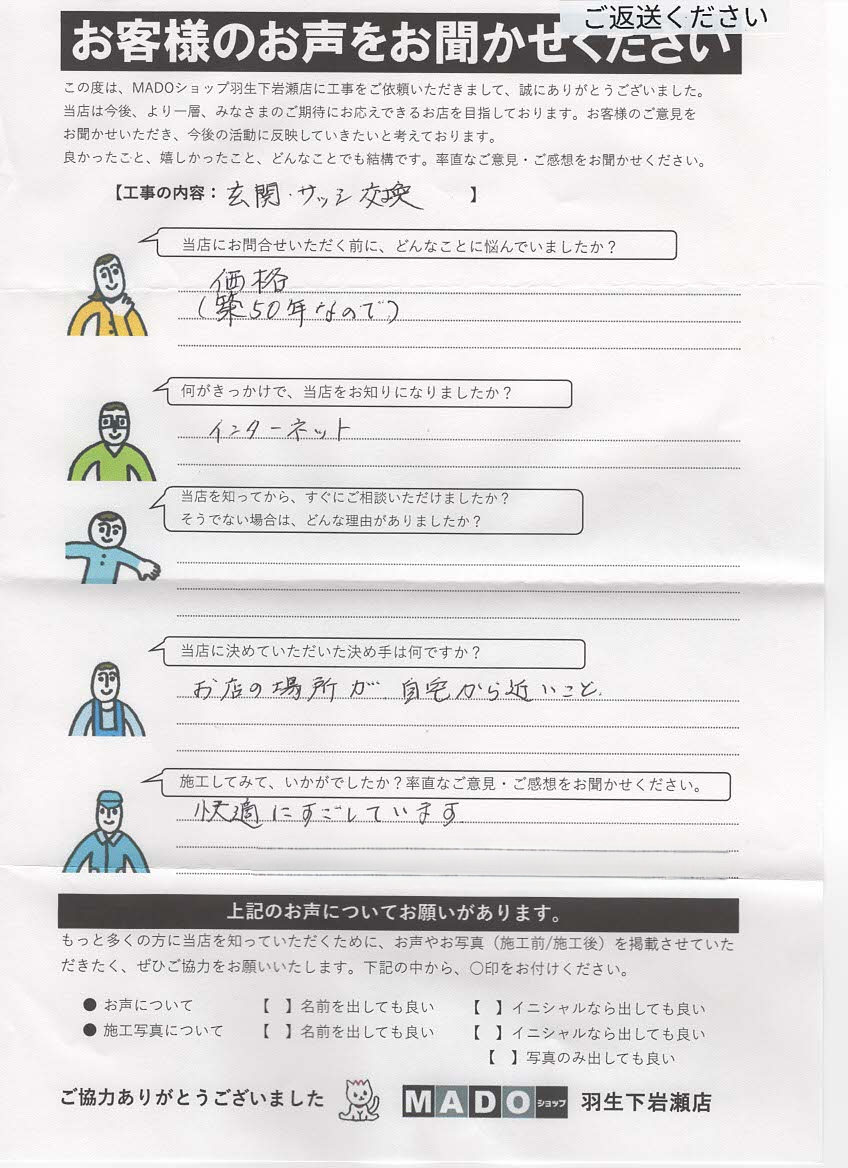 ご返送ください
お客様のお声をお聞かせください
この度は、MADOショップ羽生下岩瀬店に工事をご依頼いただきまして、誠にありがとうございました。
当店は今後、より一層、みなさまのご期待にお応えできるお店を目指しております。お客様のご意見を
お聞かせいただき、今後の活動に反映していきたいと考えております。
良かったこと、嬉しかったこと、どんなことでも結構です。率直なご意見・ご感想をお聞かせください。
【工事の内容：玄関・サッシ交換　】
当店にお問合せいただく前に、どんなことに悩んでいましたか？
価格
(築50年なので)
何がきっかけで、当店をお知りになりましたか？
インターネット
当店を知ってから、すぐにご相談いただけましたか？
そうでない場合は、どんな理由がありましたか？
当店に決めていただいた決め手は何ですか？
お店の場所が、自宅から近いこと。
施工してみて、いかがでしたか？率直なご意見・ご感想をお聞かせください。
快適にすごしています
上記のお声についてお願いがあります。
もっと多くの方に当店を知っていただくために、お声やお写真（施工前/施工後）を掲載させていた
だきたく、ぜひご協力をお願いいたします。下記の中から、〇印をお付けください。
● お声について　【　】名前を出しても良い　【　】イニシャルなら出しても良い
● 施工写真について　【　】名前を出しても良い　【　】イニシャルなら出しても良い
【　】写真のみ出しても良い
ご協力ありがとうございました　MADOショップ　羽生下岩瀬店